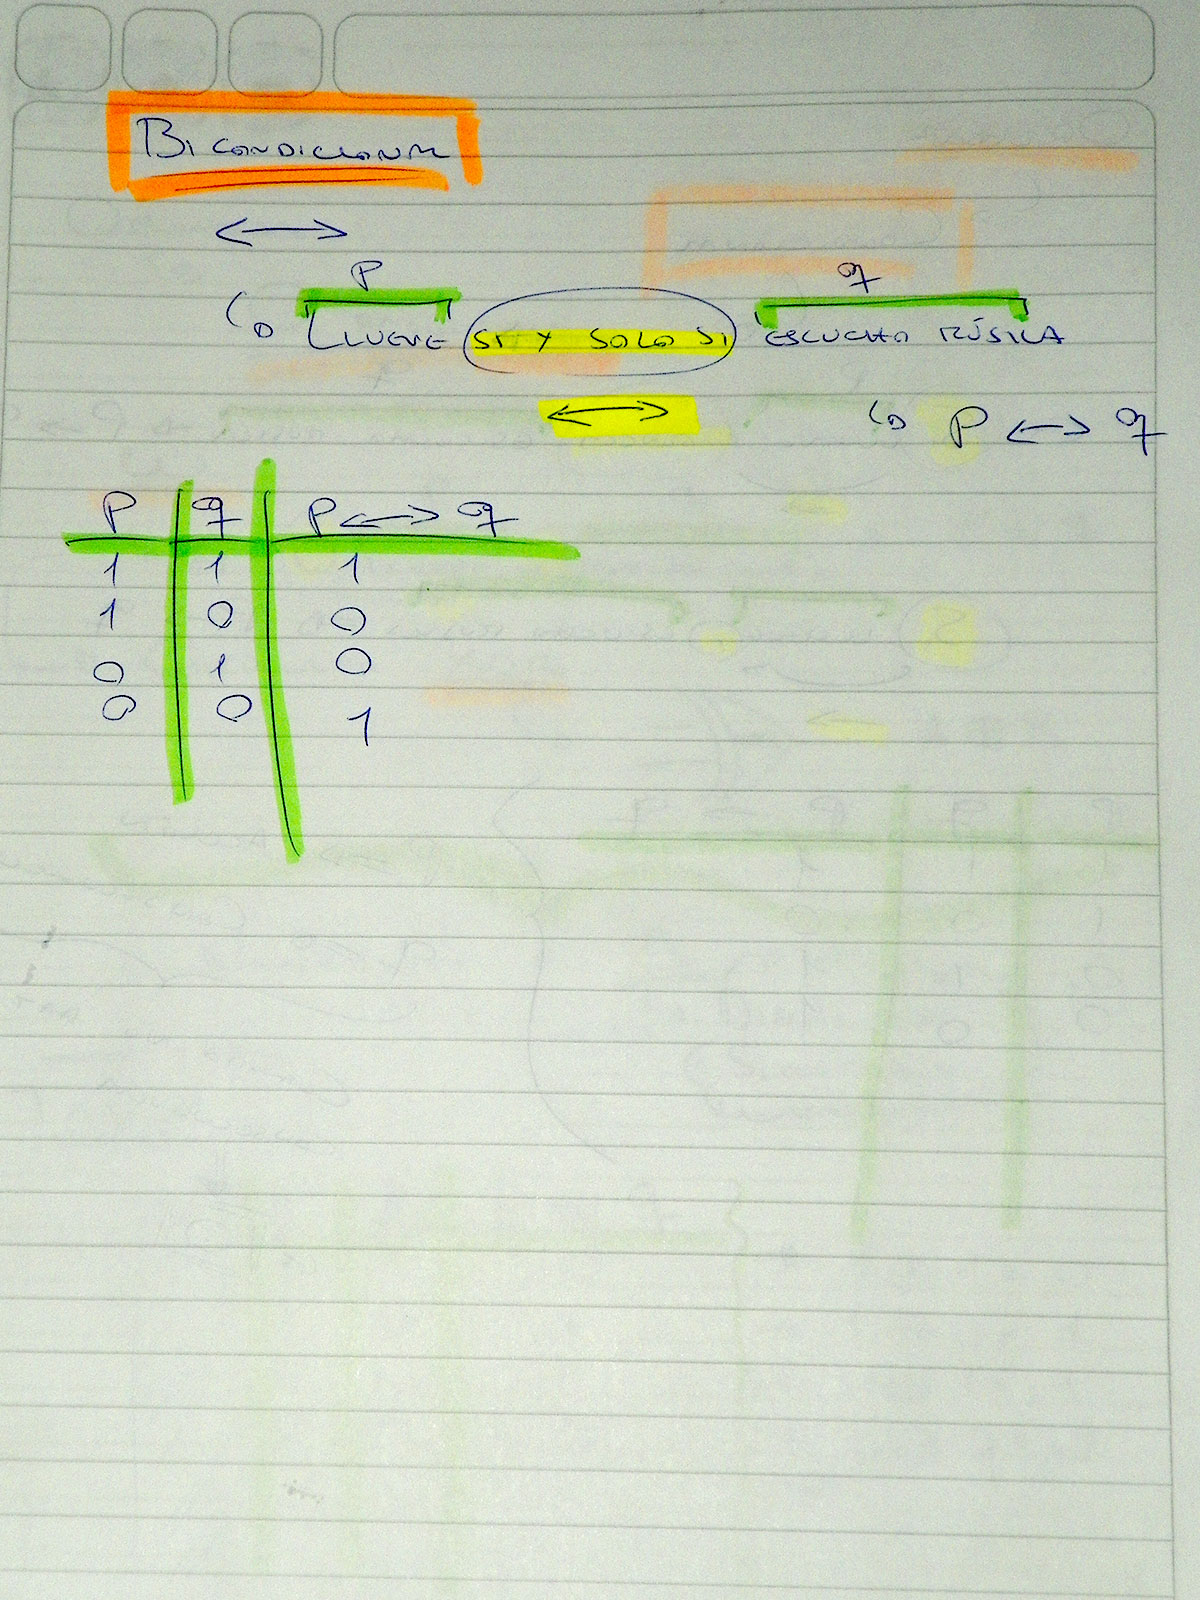 BICONDICIONAL
↔
p q
↳ LLUEVE SI Y SOLO SI ESCUCHO MÚSICA
↔ ↳ p ↔ q
p q p ↔ q
1 1 1
1 0 0
0 1 0
0 0 1